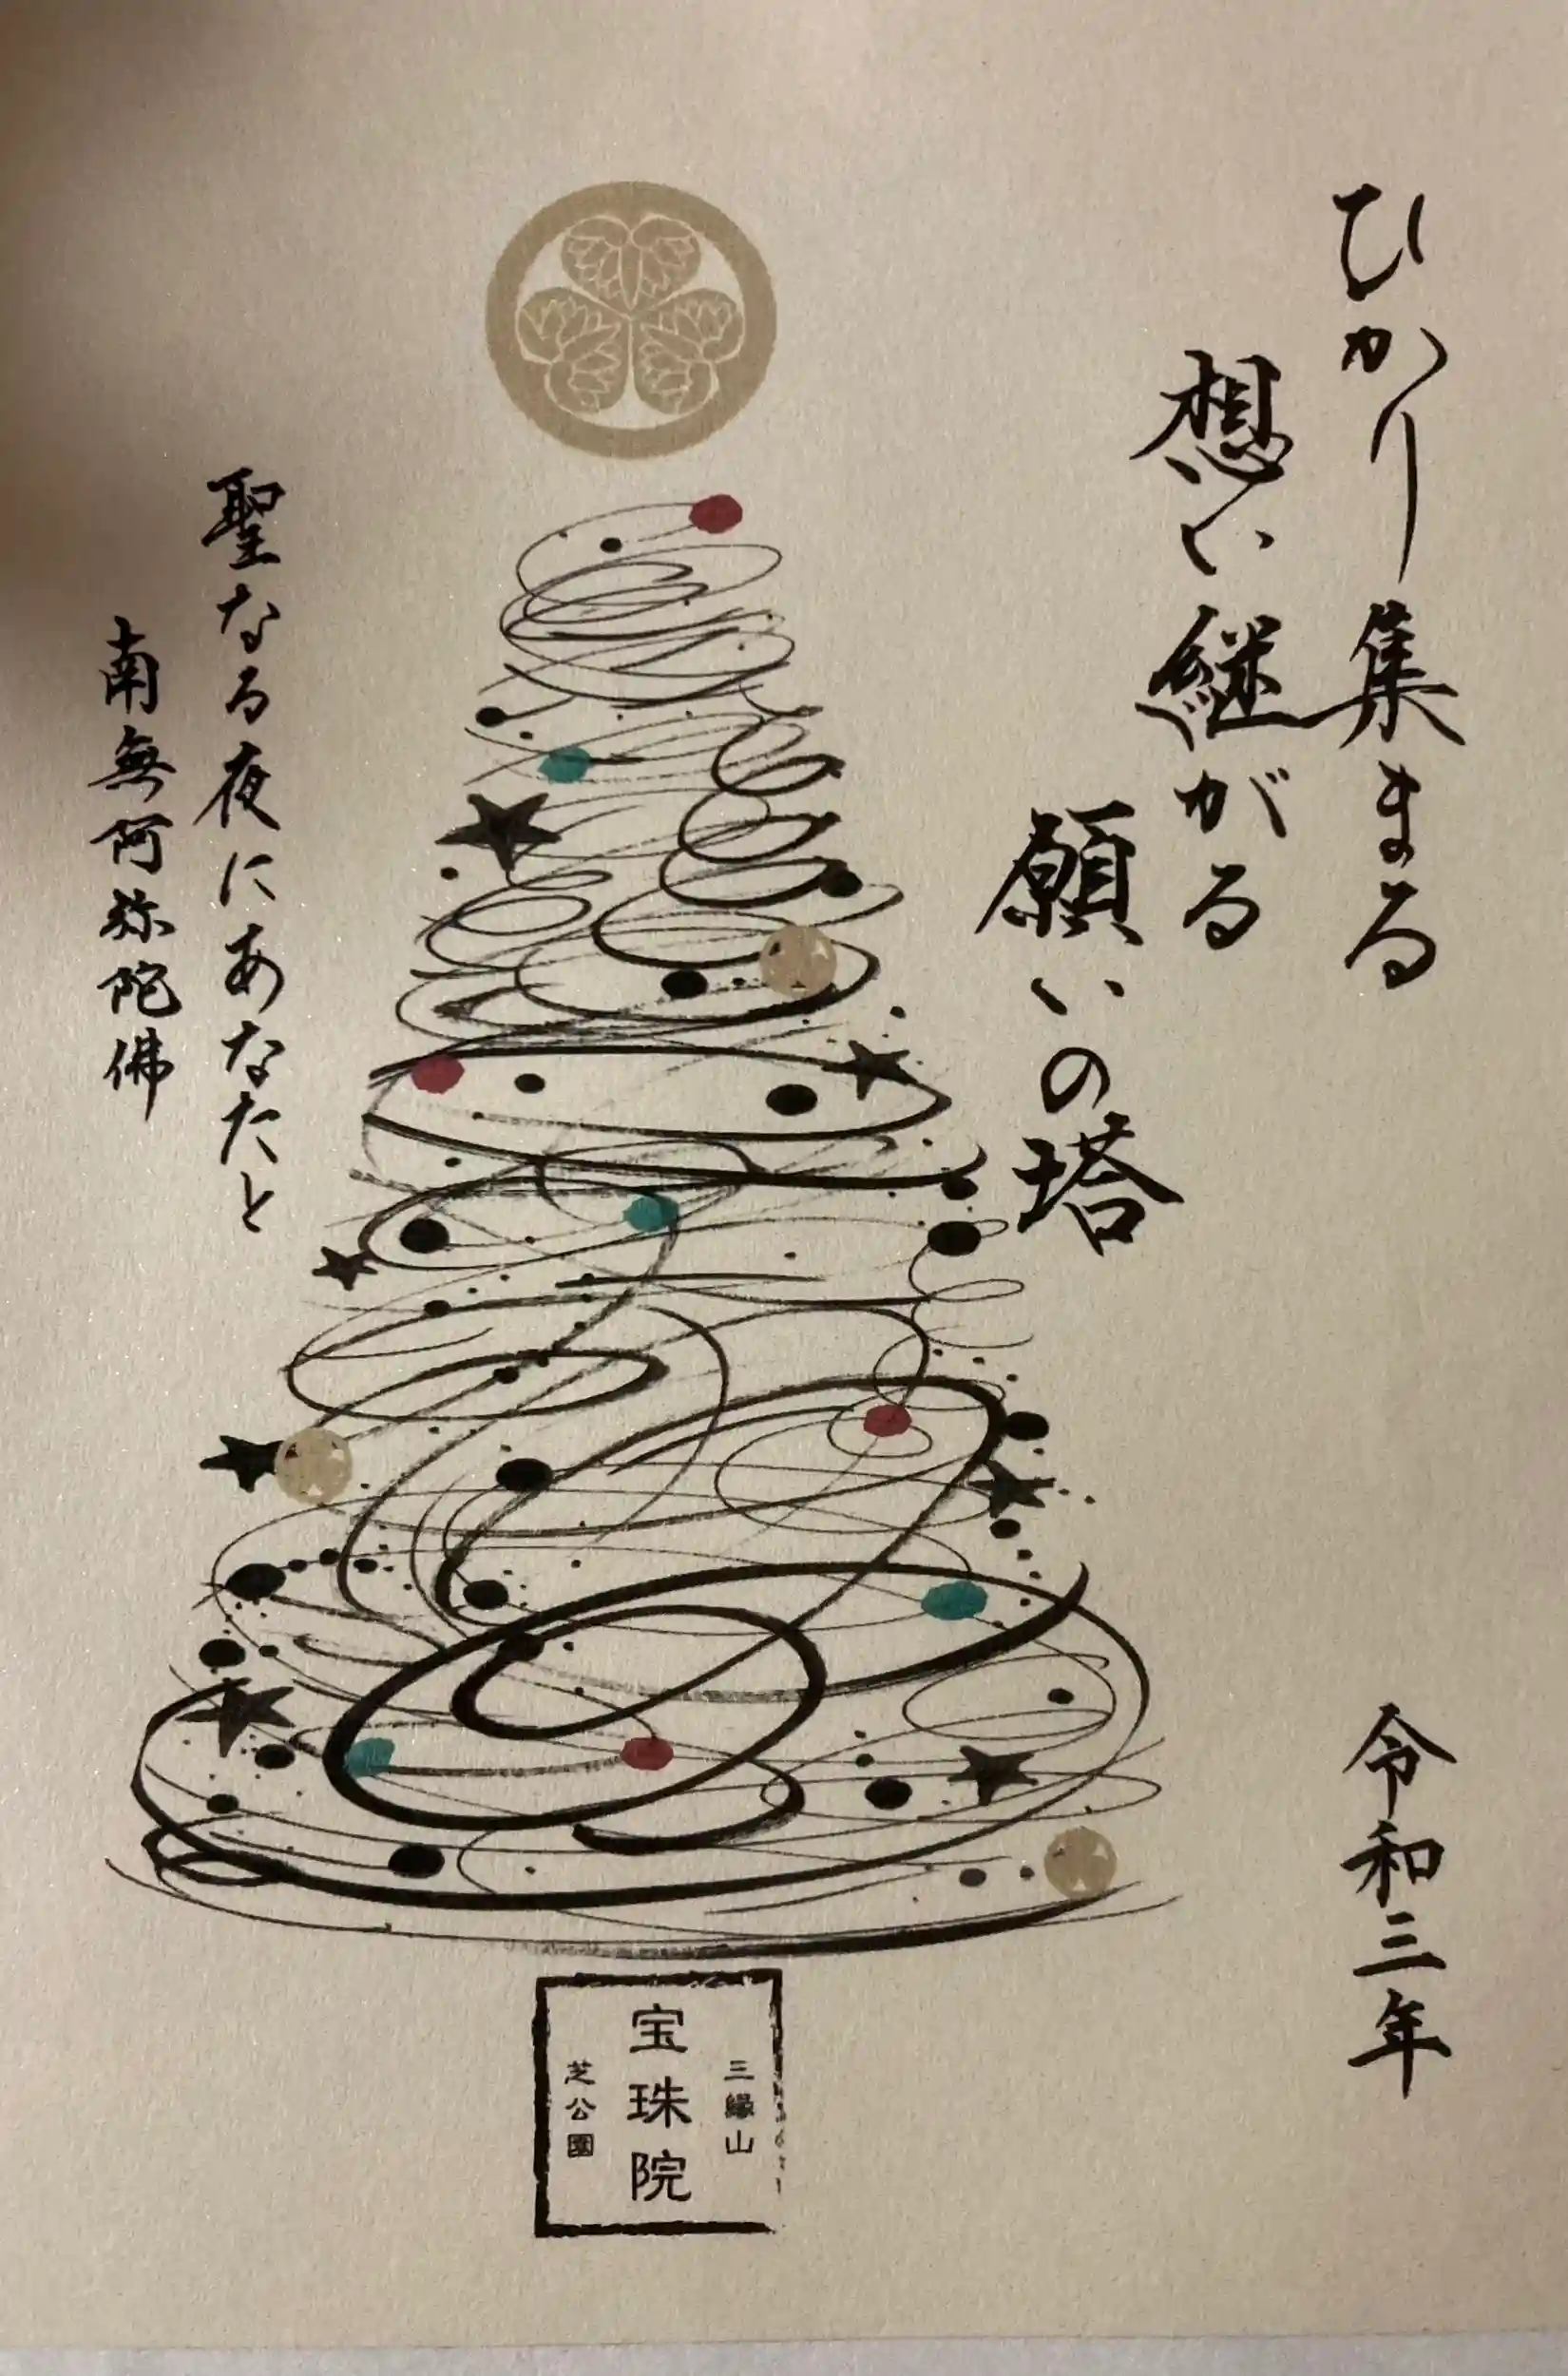 ひかり集まる
想い継がる
願いの塔
令和三年
聖なる夜にあなたと
南無阿弥陀佛
三縁山
宝珠院
芝公園